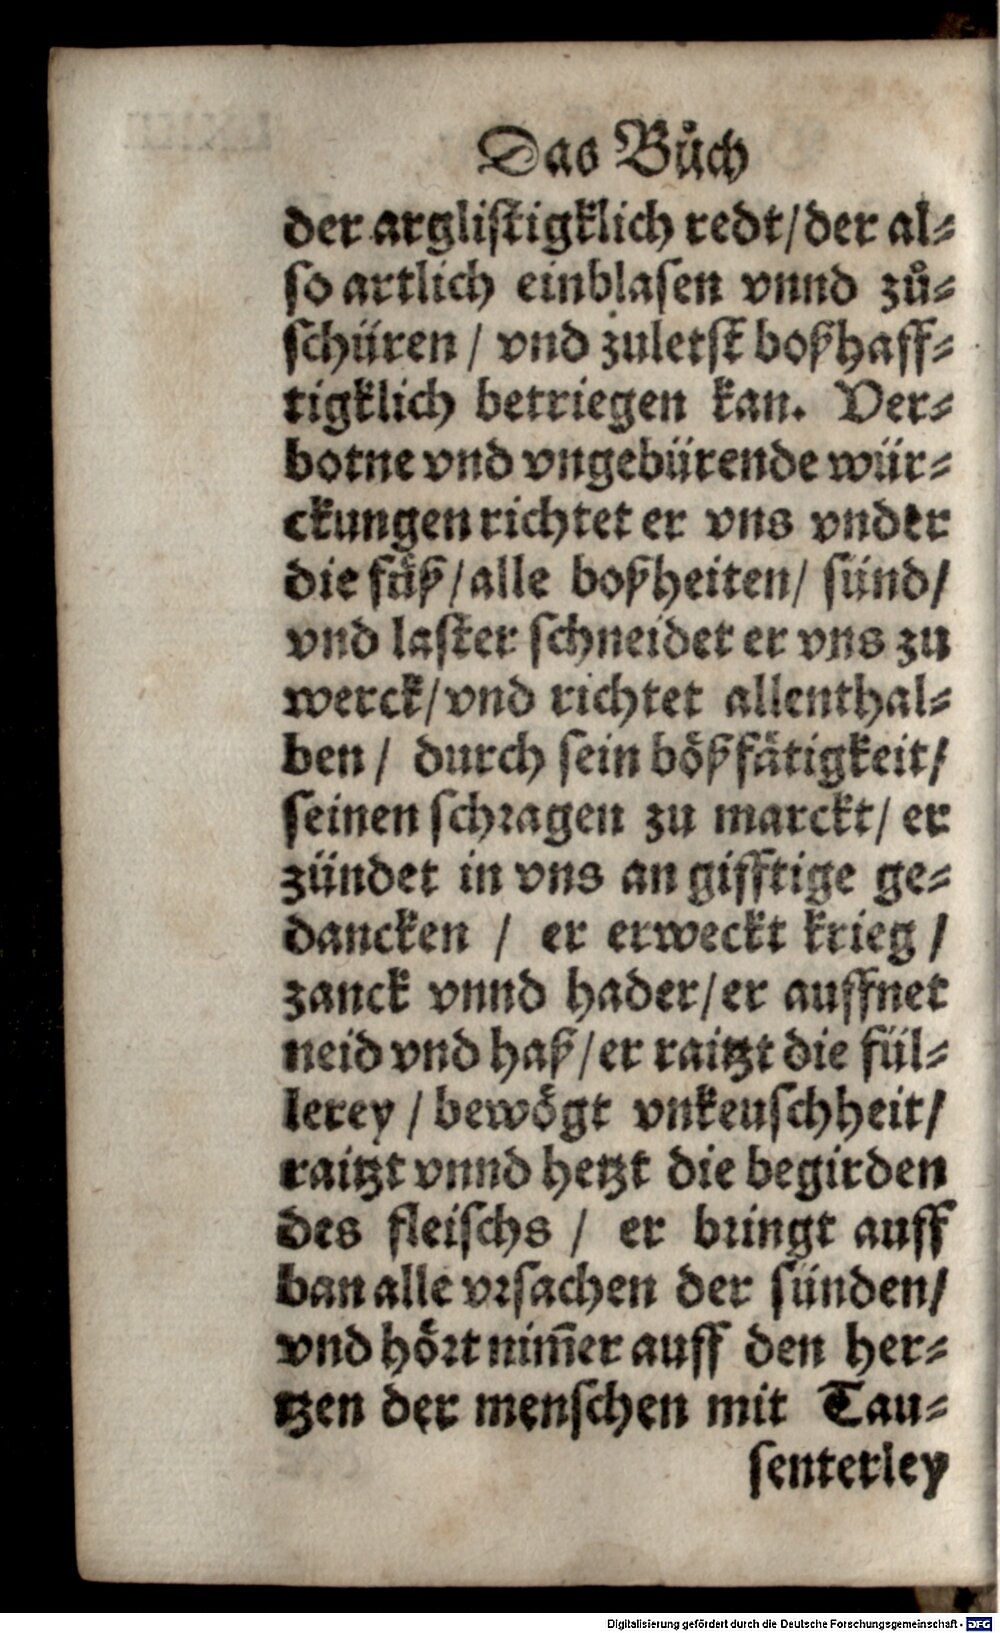 Das Bůch
der arglistigklich redt/der al⸗
so artlich einblasen vnnd zů⸗
schüren / vnd zuletst boßhaff⸗
tigklich betriegen kan. Ver⸗
botne vnd vngebürende wür⸗
ckungen richtet er vns vnder
die füß/alle boßheiten/ sünd/
vnd laster schneidet er vns zu
werck/vnd richtet allenthal⸗
ben / durch sein bößfätigkeit/
seinen schragen zu marckt/ er
zündet in vns an gifftige ge⸗
dancken / er erweckt krieg /
zanck vnnd hader/er auffnet
neid vnd haß/er raitzt die fül⸗
lerey / bewögt vnkeuschheit/
raitzt vnnd hetzt die begirden
des fleischs / er bringt auff
ban alle vrsachen der sünden/
vnd hört nim̄er auff den her⸗
tzen der menschen mit Tau⸗
senterley
Digitalisierung gefördert durch die Deutsche Forschungsgemeinschaft - DFG